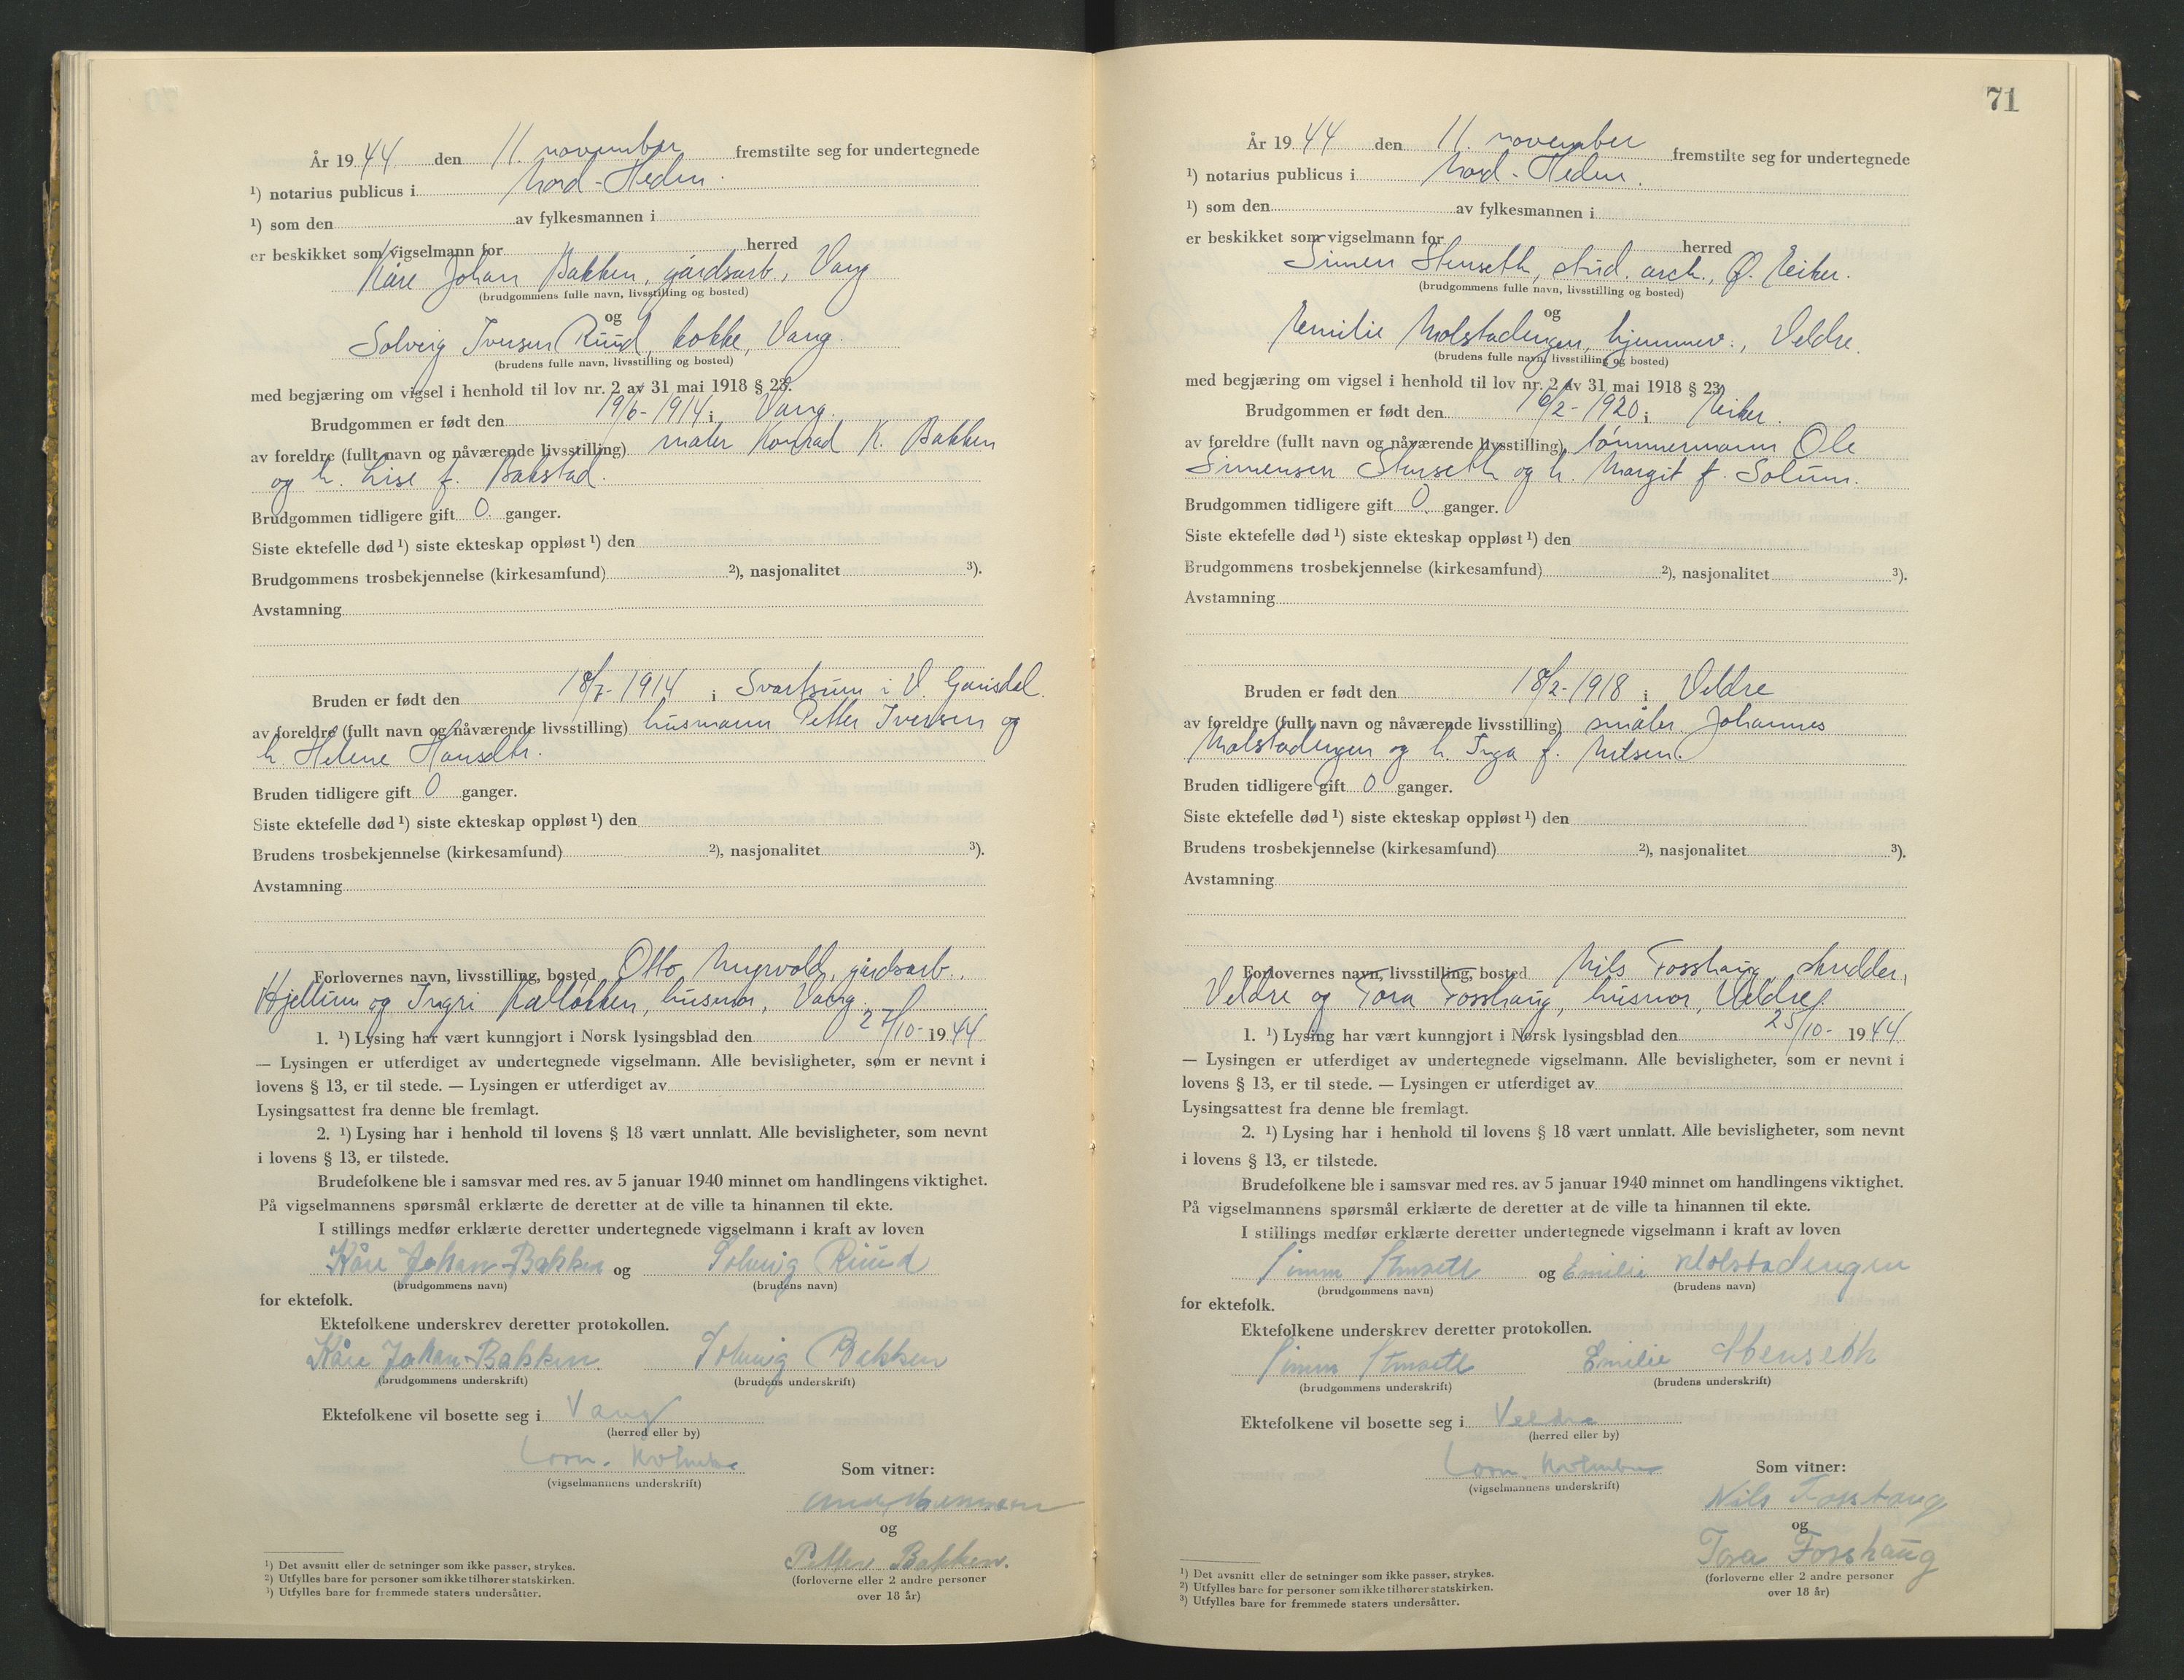 År 1944 den 11. november fremstilte seg for undertegnede
¹) notarius publicus i Nord-Hedm.
¹) som den av fylkesmannen i
er beskikket som vigselmann for herred
Kåre Johan Bakken, gårdsarb., Vang
(brudgommens fulle navn, livsstilling og bosted)
og
Solveig Iversen Ruud, kokke, Vang.
(brudens fulle navn, livsstilling og bosted)
med begjæring om vigsel i henhold til lov nr. 2 av 31 mai 1918 § 23.
Brudgommen er født den 19/6-1914 i Vang.
av foreldre (fullt navn og nåværende livsstilling) maler Konrad K. Bakken
og h. Lise f. Bakstad.
Brudgommen tidligere gift 0. ganger.
Siste ektefelle død ¹) siste ekteskap oppløst ¹) den
Brudgommens trosbekjennelse (kirkesamfund) ²), nasjonalitet ³).
Avstamning
Bruden er født den 18/7-1914 i Svartsum i V. Gausdal.
av foreldre (fullt navn og nåværende livsstilling) husmann Petter Iversen og
h. Helene Hansdtr.
Bruden tidligere gift 0 ganger.
Siste ektefelle død ¹) siste ekteskap oppløst ¹) den
Brudens trosbekjennelse (kirkesamfund) ²), nasjonalitet ³).
Avstamning
Forlovernes navn, livsstilling, bosted Otto Myrvold, gårdsarb.,
Hjellum og Ingri husmor, Vang.
1. ¹) Lysing har vært kunngjort i Norsk lysingsblad den 27/10-1944
— Lysingen er utferdiget av undertegnede vigselmann. Alle bevisligheter, som er nevnt i
lovens § 13, er til stede. — Lysingen er utferdiget av
Lysingsattest fra denne ble fremlagt.
2. ¹) Lysing har i henhold til lovens § 18 vært unnlatt. Alle bevisligheter, som nevnt
i lovens § 13, er tilstede.
Brudefolkene ble i samsvar med res. av 5 januar 1940 minnet om handlingens viktighet.
På vigselmannens spørsmål erklærte de deretter at de ville ta hinannen til ekte.
I stillings medfør erklærte deretter undertegnede vigselmann i kraft av loven
Kåre Johan Bakken og Solveig Ruud
(brudgommens navn) (brudens navn)
for ektefolk.
Ektefolkene underskrev deretter protokollen.
Kåre Johan Bakken Solveig Bakken
(brudgommens underskrift) (brudens underskrift)
Ektefolkene vil bosette seg i Vang
(herred eller by)
(vigselmannens underskrift) Som vitner:
og
Petter Bakken.
(forloverne eller 2 andre personer
over 18 år)
¹) Det avsnitt eller de setninger som ikke passer, strykes.
²) Utfylles bare for personer som ikke tilhører statskirken.
³) Utfylles bare for fremmede staters undersåtter.
71
År 1944 den 11. november fremstilte seg for undertegnede
¹) notarius publicus i Nord-Hedm.
¹) som den av fylkesmannen i
er beskikket som vigselmann for herred
Simen Stenseth, stud. arch., Ø. Eiker.
(brudgommens fulle navn, livsstilling og bosted)
og
Emilie Molstadengen, hjemmev., Veldre.
(brudens fulle navn, livsstilling og bosted)
med begjæring om vigsel i henhold til lov nr. 2 av 31 mai 1918 § 23
Brudgommen er født den 16/2-1920 i Eiker.
av foreldre (fullt navn og nåværende livsstilling) tømmermann Ole
Simensen Stenseth og h. Margit f. Solum.
Brudgommen tidligere gift 0. ganger.
Siste ektefelle død ¹) siste ekteskap oppløst ¹) den
Brudgommens trosbekjennelse (kirkesamfund) ²), nasjonalitet ³).
Avstamning
Bruden er født den 18/2-1918 i Veldre
av foreldre (fullt navn og nåværende livsstilling) småbr. Johannes
Molstadengen og h. Inga f. Nilsen.
Bruden tidligere gift 0 ganger.
Siste ektefelle død ¹) siste ekteskap oppløst ¹) den
Brudens trosbekjennelse (kirkesamfund) ²), nasjonalitet ³).
Avstamning
Forlovernes navn, livsstilling, bosted Nils Fosshaug, skredder,
Veldre og Tora Fosshaug, husmor, Veldre.
1. ¹) Lysing har vært kunngjort i Norsk lysingsblad den 25/10-1944
— Lysingen er utferdiget av undertegnede vigselmann. Alle bevisligheter, som er nevnt i
lovens § 13, er til stede. — Lysingen er utferdiget av
Lysingsattest fra denne ble fremlagt.
2. ¹) Lysing har i henhold til lovens § 18 vært unnlatt. Alle bevisligheter, som nevnt
i lovens § 13, er tilstede.
Brudefolkene ble i samsvar med res. av 5 januar 1940 minnet om handlingens viktighet.
På vigselmannens spørsmål erklærte de deretter at de ville ta hinannen til ekte.
I stillings medfør erklærte deretter undertegnede vigselmann i kraft av loven
Simen Stenseth og Emilie Molstadengen
(brudgommens navn) (brudens navn)
for ektefolk.
Ektefolkene underskrev deretter protokollen.
Simen Stenseth Emilie Stenseth
(brudgommens underskrift) (brudens underskrift)
Ektefolkene vil bosette seg i Veldre
(herred eller by)
(vigselmannens underskrift) Som vitner:
Nils Fosshaug
og
Tora Fosshaug
(forloverne eller 2 andre personer
over 18 år)
¹) Det avsnitt eller de setninger som ikke passer, strykes.
²) Utfylles bare for personer som ikke tilhører statskirken.
³) Utfylles bare for fremmede staters undersåtter.